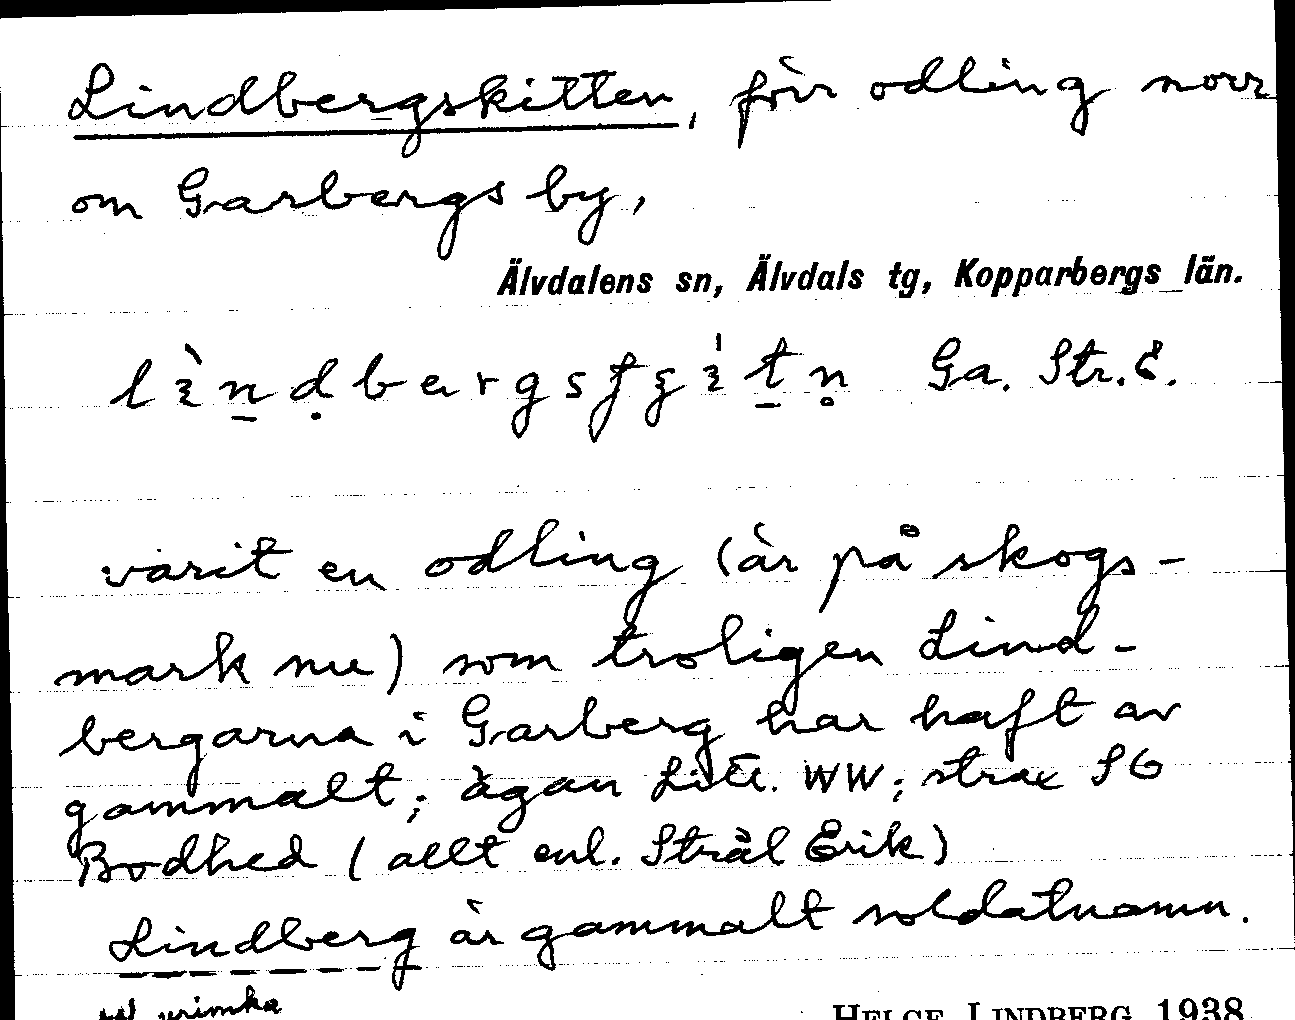 Lindbergskitten, förr odling norr
om Garbergs by,
Älvdalens sn, Älvdals tg, Kopparbergs län.
Ga. Str. E.
varit en odling (är på skogs-
mark nu) som troligen Lind-
bergarna i Garberg har haft av
gammalt; ägan Litt. WW; strax SO
Bodhed (allt enl. Strål Erik)
Lindberg är gammalt soldatnamn.
HELGE LINDBERG 1938